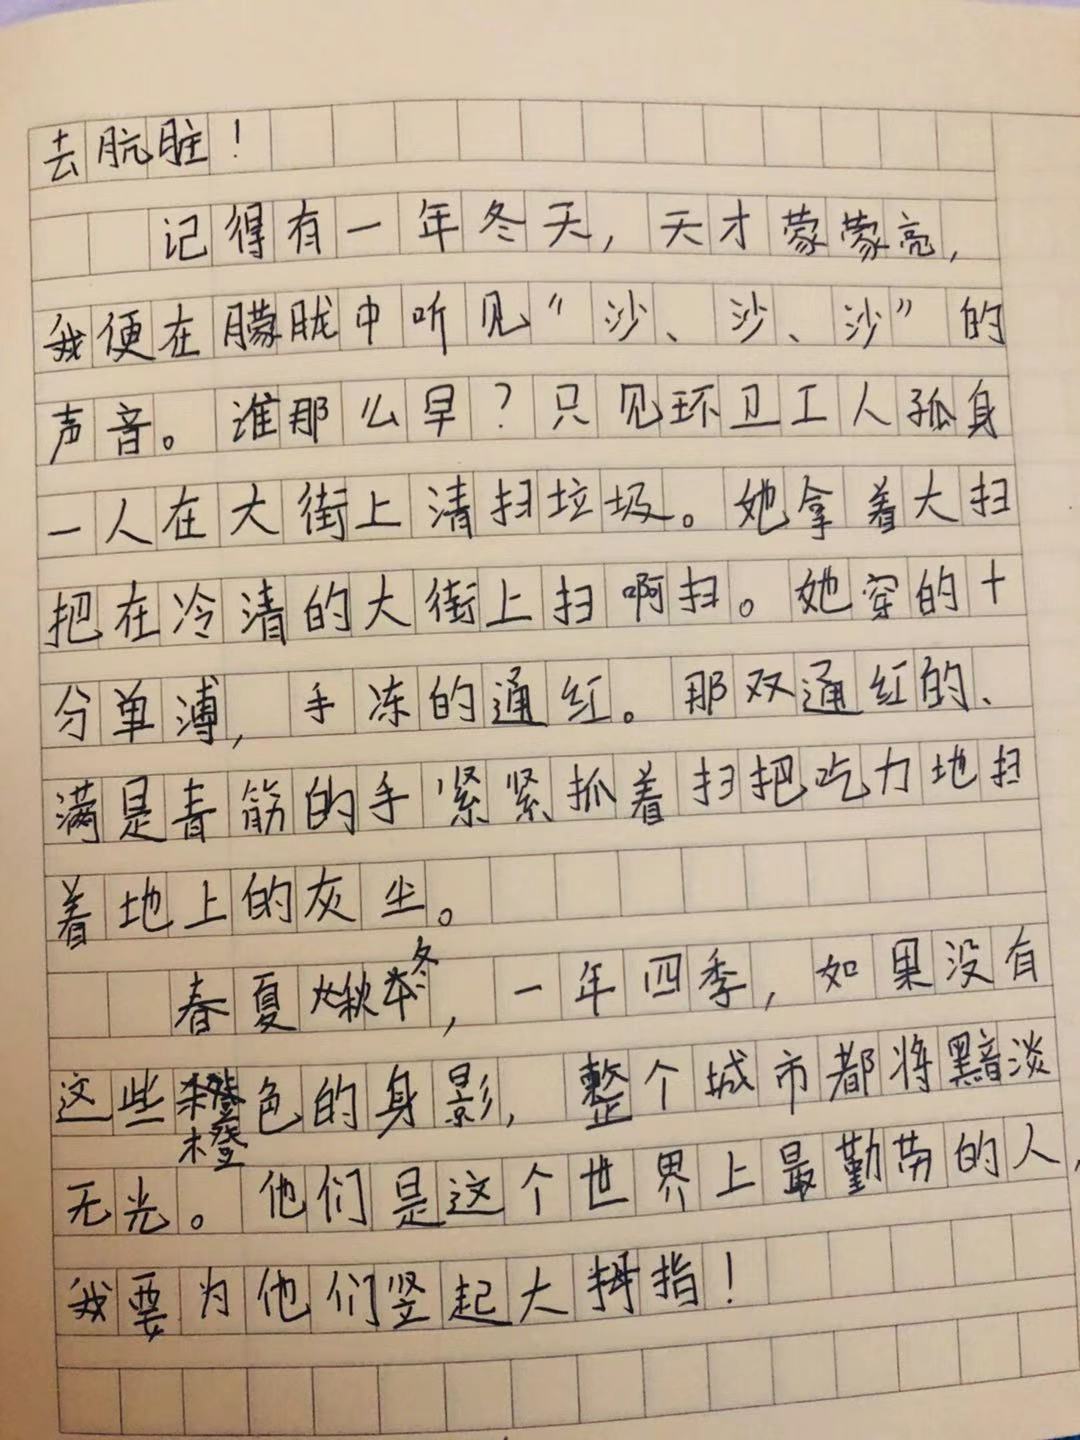 去肮脏！
记得有一年冬天，天才蒙蒙亮，
我便在朦胧中听见“沙、沙、沙”的
声音。谁那么早？只见环卫工人孤身
一人在大街上清扫垃圾。她拿着大扫
把在冷清的大街上扫啊扫。她穿的十
分单溥，手冻的通红。那双通红的、
满是青筋的手紧紧抓着扫把吃力地扫
着地上的灰尘。
春夏秋冬，一年四季，如果没有
这些橙色的身影，整个城市都将黯淡
无光。他们是这个世界上最勤劳的人，
我要为他们竖起大拇指！